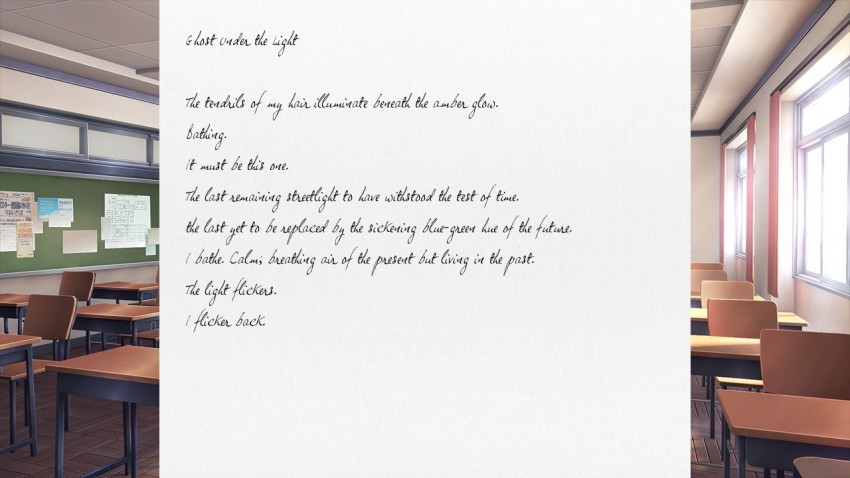 Ghost Under the Light
The tendrils of my hair illuminate beneath the amber glow.
Bathing.
It must be this one.
The last remaining streetlight to have withstood the test of time.
the last yet to be replaced by the sickening blue-green hue of the future.
I bathe. Calm; breathing air of the present but living in the past.
The light flickers.
I flicker back.